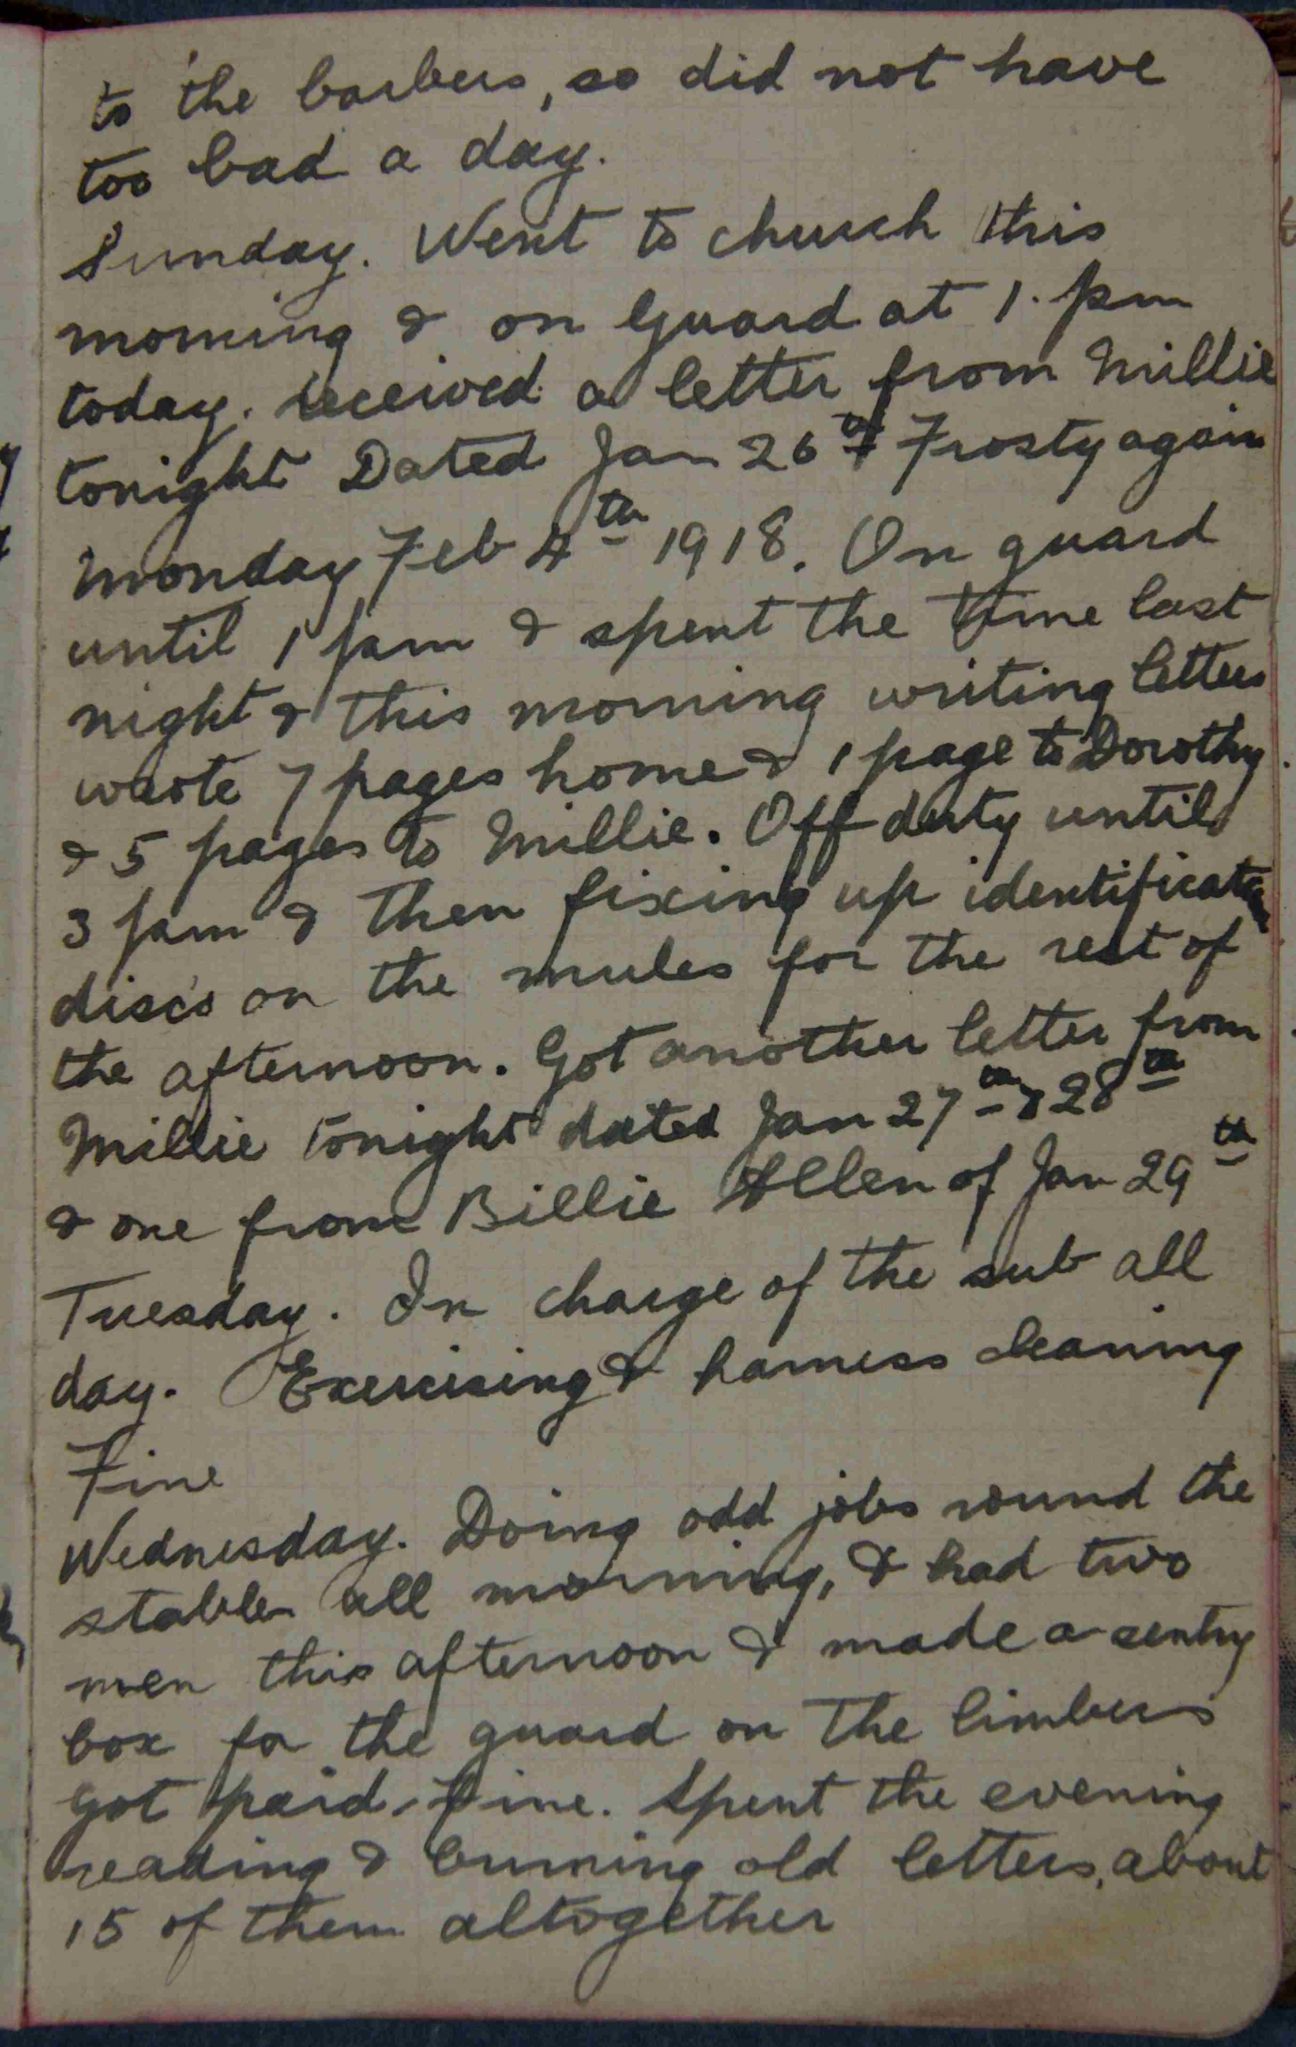 to the barbers, so did not have
too bad a day.
Sunday. Went to church this
morning & on Guard at 1. pm
today. received a letter from Millie
tonight Dated Jan 26th Frosty again
Monday Feb 4th 1918. On guard
until 1 pm & spent the time last
night & this morning writing letters
wrote 7 pages home & 1 page to Dorothy
& 5 pages to Millie. Off duty until
3 pm & then fixing up identification
discs on the mules for the rest of
the afternoon. Got another letter from
Millie tonight dated Jan 27th & 28th
& one from Billie Allen of Jan 29th
Tuesday. In charge of the sub all
day. Exercising & harness cleaning
Fine
Wednesday. Doing odd jobs round the
stables all morning, & had two
men this afternoon & made a sentry
box for the guard on the limbers
Got paid. Fine. Spent the evening
reading & burning old letters, about
15 of them altogether